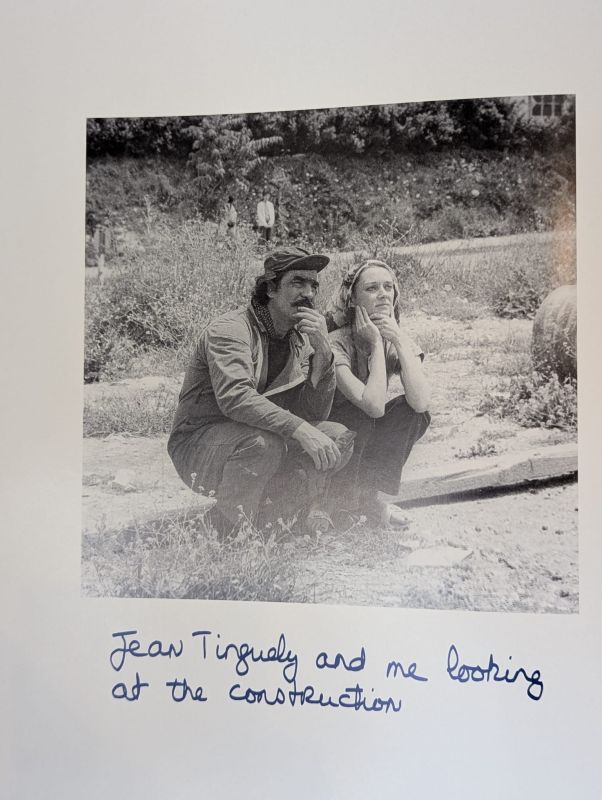 Jean Tinguely and me looking
at the construction